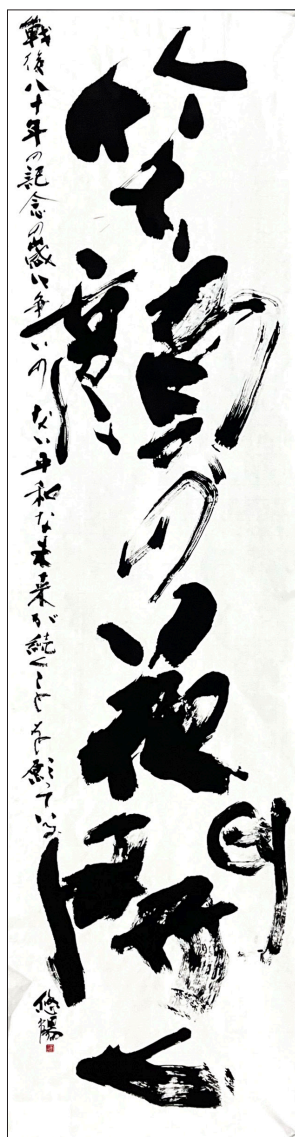 笑顔の花開く
戦後八十年の記念の歳に争いのない平和な未来が続くことを願っている